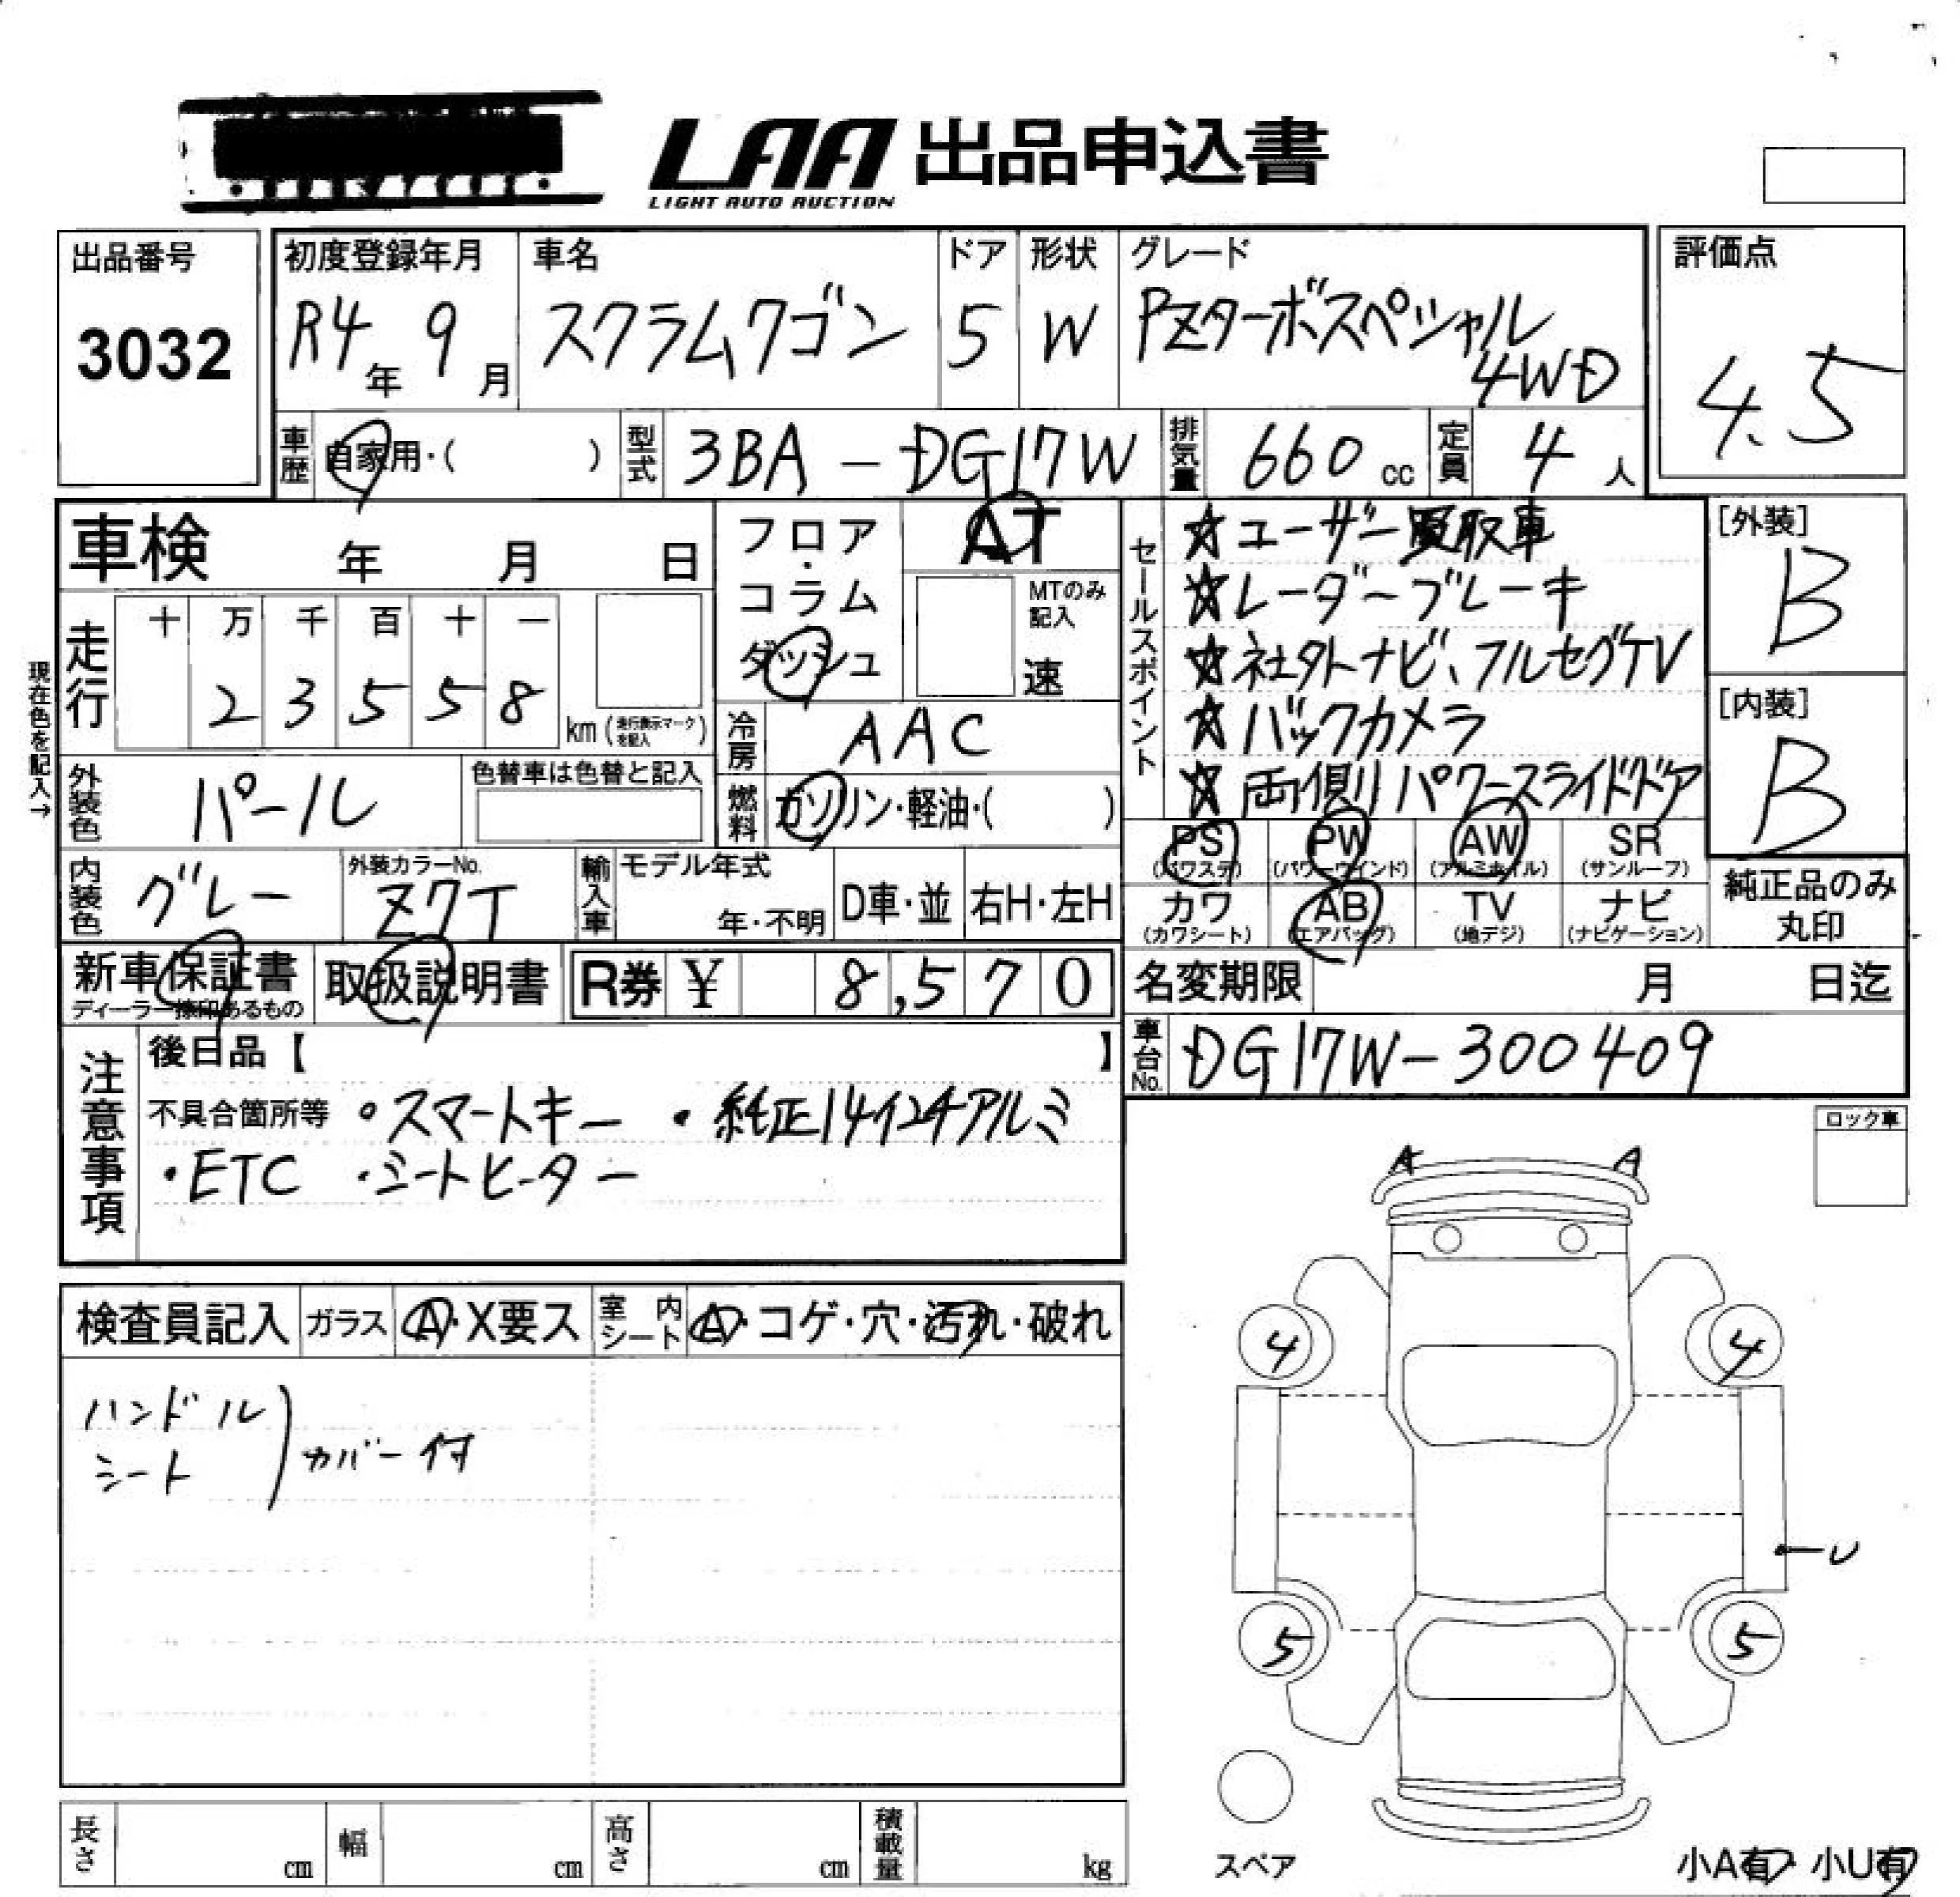 LAA 出品申込書
LIGHT AUTO AUCTION
出品番号
3032
初度登録年月
R4年 9月
車名
スクラムワゴン
ドア
5
形状
W
グレード
PZターボスペシャル
4WD
評価点
4.5
車歴 自家用・( )
型式 3BA-DG17W
排気量 660 cc
定員 4 人
車検 年 月 日
フロア・コラム
ダッシュ
AT
MTのみ記入
速
セールスポイント
☆ユーザー買取車
☆レーダーブレーキ
☆社外ナビ、フルセグTV
☆バックカメラ
☆両側パワースライドドア
[外装]
B
[内装]
B
現在色を記入→
走行
十 万 千 百 十 一
2 3 5 5 8
km (走行表示マークを記入)
冷房 AAC
燃料 ガソリン・軽油・( )
外装色 パール
色替車は色替と記入
内装色 グレー
外装カラーNo.
Z7T
輸入車
モデル年式
年・不明
D車・並
右H・左H
PS (パワステ)
PW (パワーウインド)
AW (アルミホイル)
SR (サンルーフ)
カワ (カワシート)
AB (エアバッグ)
TV (地デジ)
ナビ (ナビゲーション)
純正品のみ
丸印
新車保証書
ディーラー捺印あるもの
取扱説明書
R券 ¥ 8,570
名変期限 月 日迄
車台No. DG17W-300409
注意事項
後日品【 】
不具合箇所等 ・スマートキー ・純正14インチアルミ
・ETC ・シートヒーター
ロック車
A A
4 4
U
5 5
スペア
小A有・小U有
検査員記入
ガラス A・X要ス
室内シート A・コゲ・穴・汚れ・破れ
ハンドル
シート
カバー付
長さ cm
幅 cm
高さ cm
積載量 kg